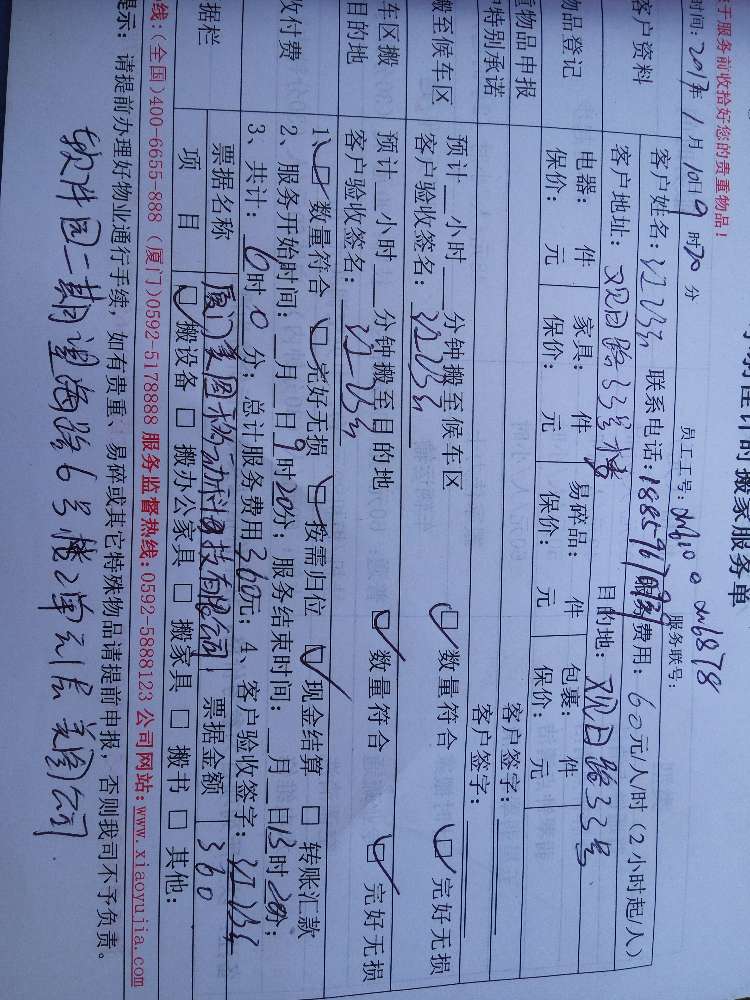 时计时搬家服务单
关于服务前收拾好您的贵重物品!
员工工号: 服务联号:
时间: 2017年 1月 10日 9 时20分
客户资料
客户姓名: 联系电话: 服务费用: 60元/人/时 (2小时起/人)
客户地址: 观日路33号楼 目的地: 观日路33号
物品登记
电器: 件 家具: 件 易碎品: 件 包裹: 件
保价: 元 保价: 元 保价: 元 保价: 元
物品申报
客户签字:
特别承诺
客户签字:
搬至候车区
预计__小时__分钟搬至候车区 数量符合 完好无损
客户验收签名:
车区搬
目的地
预计__小时__分钟搬至目的地 数量符合 完好无损
客户验收签名:
收付费
1、 数量符合 完好无损 按需归位 现金结算 □ 转账汇款
2、服务开始时间:__月__日9时20分; 服务结束时间:__月__日13时20分;
3、共计: 6时0分; 总计服务费用360元; 4、客户验收签字:
据栏
票据名称 厦门美图移动科技有限公司 票据金额 360
项 目 搬设备 □ 搬办公家具 □ 搬家具 □ 搬书 □ 其他:
线: (全国)400-6655-888 (厦门)0592-5178888 服务监督热线:0592-5888123 公司网站:www.xiaoyujia.com
提示: 请提前办理好物业通行手续, 如有贵重、易碎或其它特殊物品请提前申报, 否则我司不予负责。
软件园二期望海路6号楼2单元1层美图公司